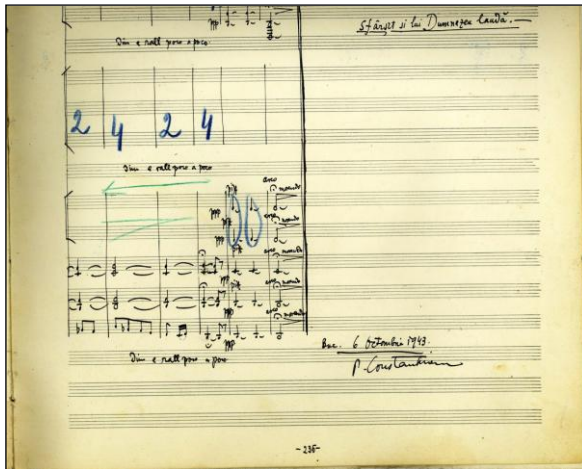 Sfârșit și lui Dumnezeu laudă. —
Dim e rall poco a poco
2 4 2 4
Dim e rall poco a poco
arco
morendo
ppp
arco
morendo
ppp
arco
morendo
ppp
arco
morendo
ppp
Dim e rall poco a poco
Buc. 6 Octombrie 1943.
P. Constantinescu
-236-